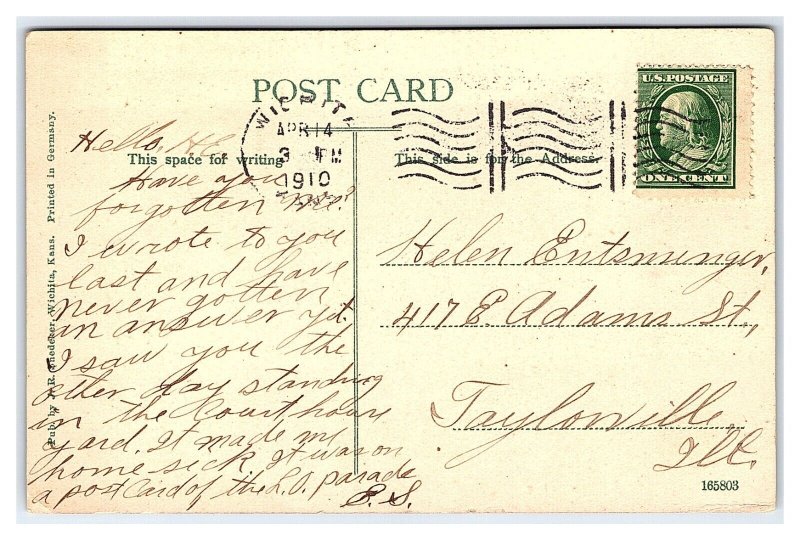 POST CARD
WICHITA
APR 14
3 PM
1910
KANS
U.S. POSTAGE
ONE CENT
This space for writing
This side is for the Address.
Hello,
Have you
forgotten me?
I wrote to you
last and have
never gotten
an answer yet.
I saw you the
other day standing
in the Court house
yard. It made me
home sick. It was on
a post Card of the I.O. parade
E.S.
Helen Entsminger,
417 E. Adams St.,
Taylorville,
Ill.
Pub. by Wichita, Kans. Printed in Germany.
165803